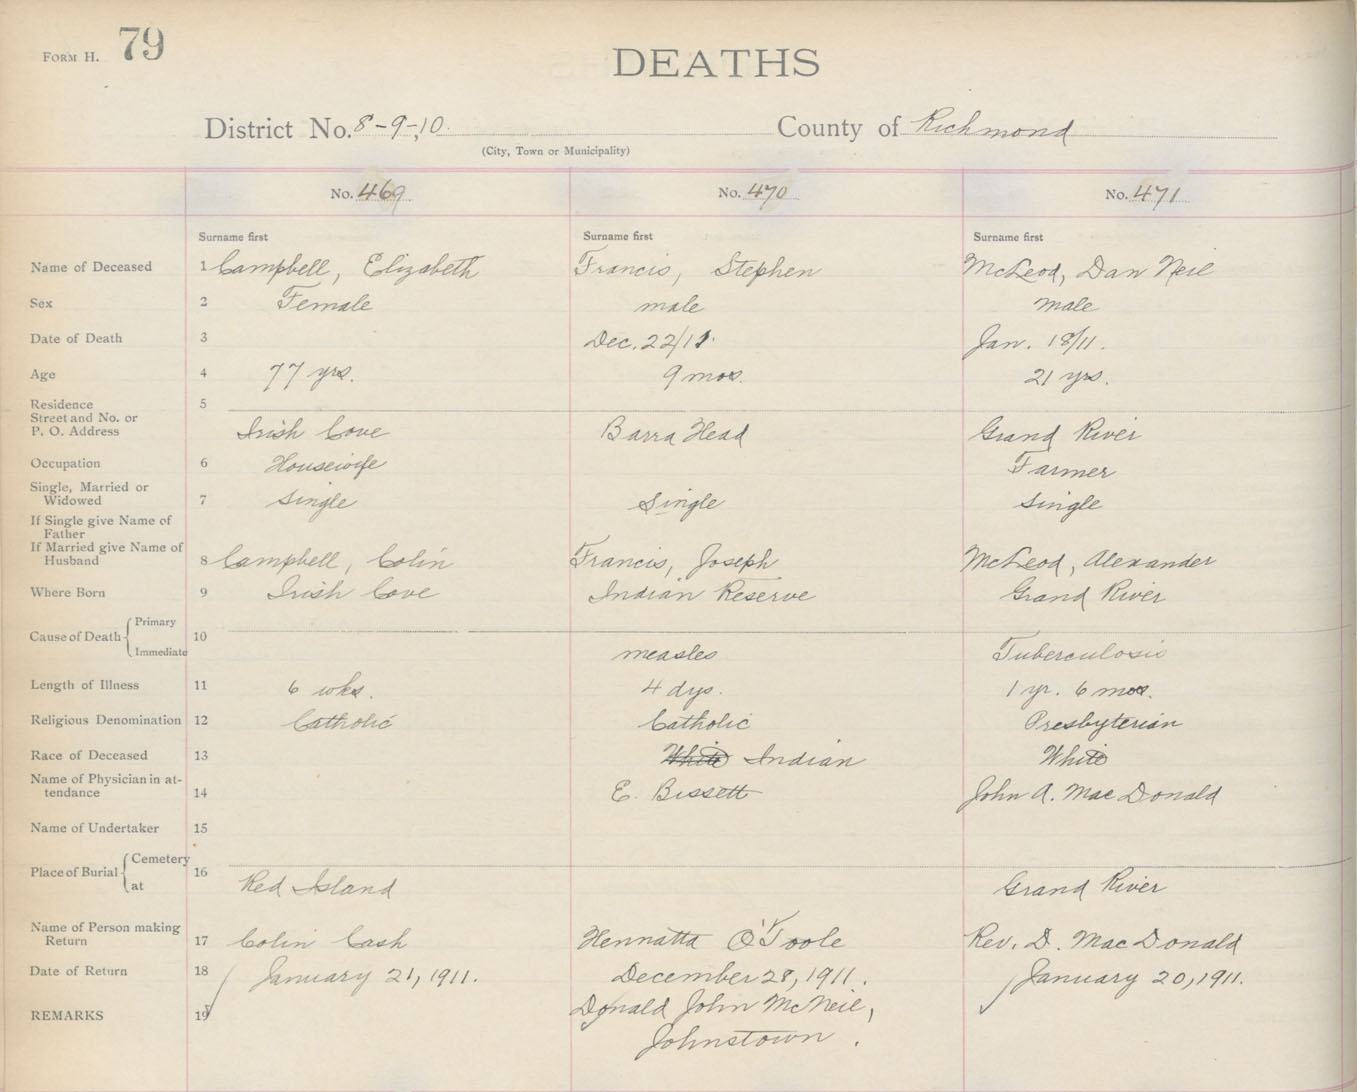 FORM H. 79
DEATHS
District No. 8-9-10 County of Richmond
(City, Town or Municipality)
No. 469 No. 470 No. 471
Surname first Surname first Surname first
Name of Deceased 1 Campbell, Elizabeth Francis, Stephen McLeod, Dan Neil
Sex 2 Female male male
Date of Death 3 Dec. 22/11. Jan. 18/11.
Age 4 77 yrs. 9 mos. 21 yrs.
Residence 5
Street and No. or
P. O. Address Irish Cove Barra Head Grand River
Occupation 6 Housewife Farmer
Single, Married or
Widowed 7 Single Single Single
If Single give Name of
Father
If Married give Name of
Husband 8 Campbell, Colin Francis, Joseph McLeod, Alexander
Where Born 9 Irish Cove Indian Reserve Grand River
Primary
Cause of Death 10
Immediate measles Tuberculosis
Length of Illness 11 6 wks. 4 dys. 1 yr. 6 mos.
Religious Denomination 12 Catholic Catholic Presbyterian
Race of Deceased 13 White Indian White
Name of Physician in at-
tendance 14 E. Bissett John A. MacDonald
Name of Undertaker 15
Cemetery
Place of Burial 16
at Red Island Grand River
Name of Person making
Return 17 Colin Cash Hennatta O'Toole Rev. D. MacDonald
Date of Return 18 January 21, 1911. December 28, 1911. January 20, 1911.
REMARKS 19 Donald John McNeil,
Johnstown.